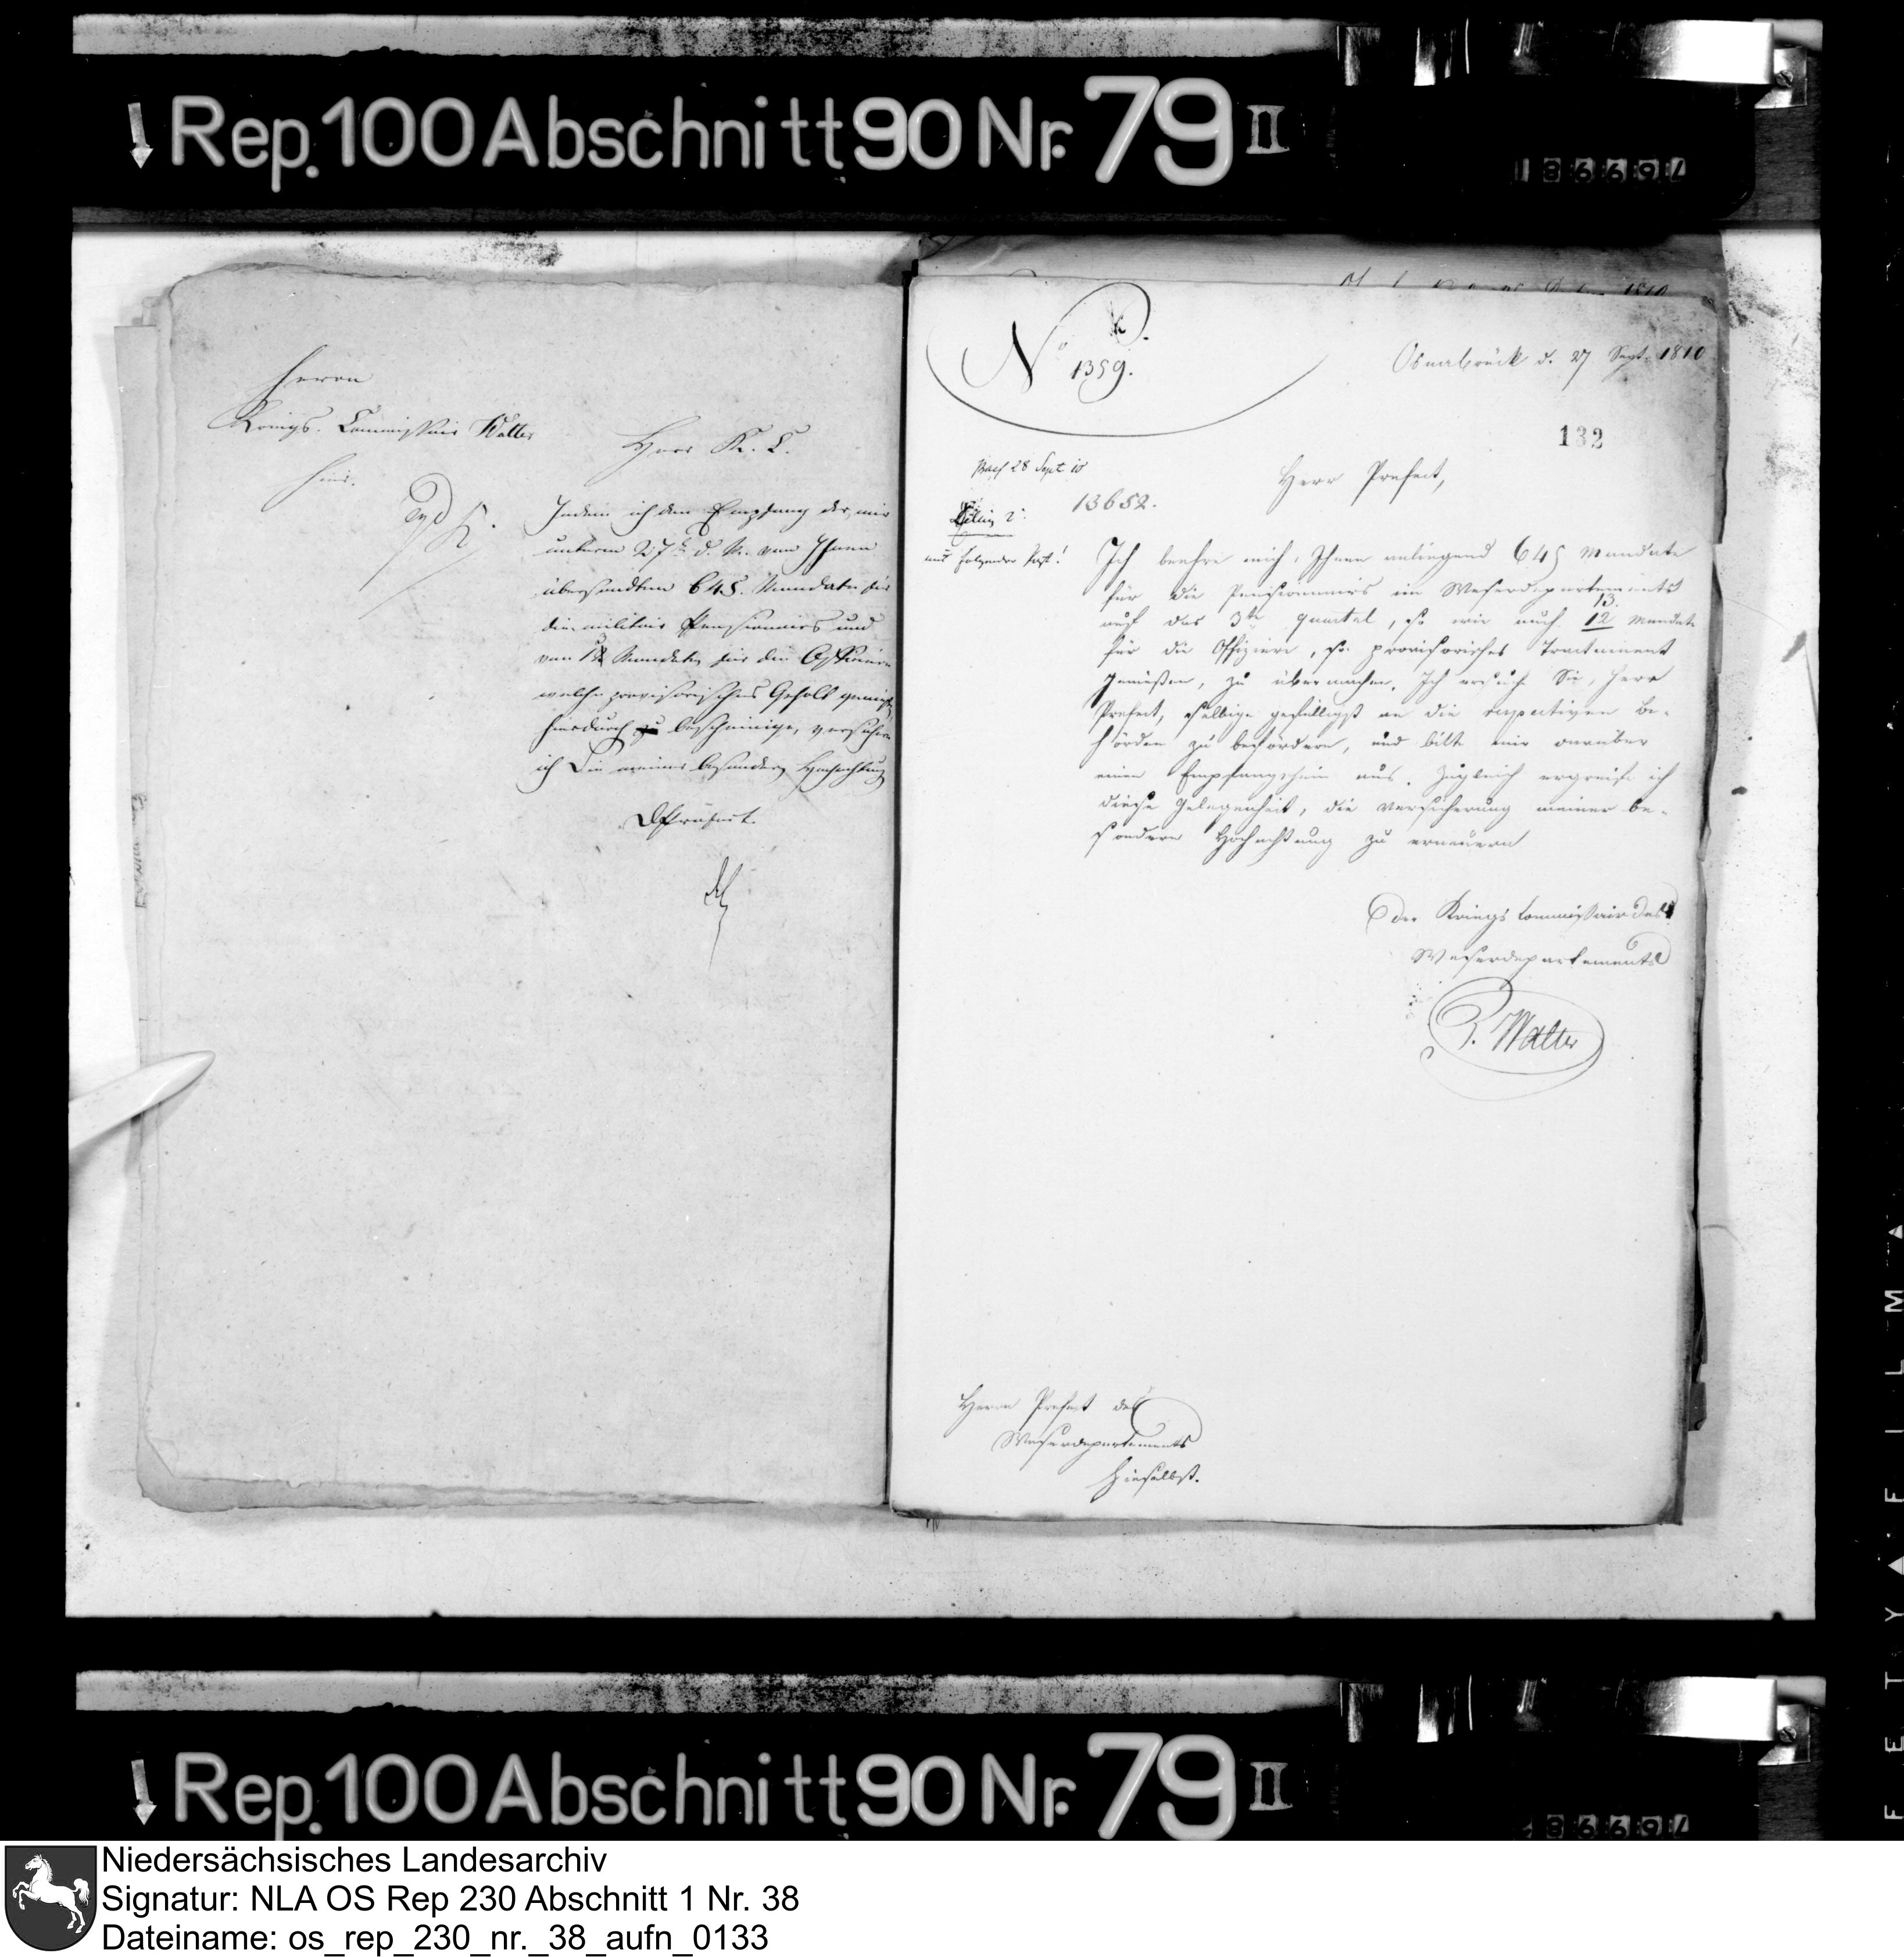 Rep. 100 Abschnitt 90 Nr. 79 II
18669/
Herrn
Kriegs. Commissair Walter
hier.
Herr K. C.
Indem ich den Empfang der mir
unterm 27t d. M. von Ihnen
übersandten 645. Mandate für
die militair Pensionairs und
von 13 Mandate für die Officiere
welche provisorisches Gehalt genießen
hierdurch bescheinige, versichere
ich Sie meiner besondern Hochachtung
No 1359.
Osnabrück d. 27 Sept. 1810
132
28 Sept 10
13652.
Herr Prefect,
Ich beehre mich, Ihnen anliegend 645 Mandate
für die Pensionnairs im Weserdepartements
auf das 3te quartal, so wie auch 13.
12 Mandate
für die Offiziere, so provisorisches Tractament
genießen, zu übermachen. Ich ersuche Sie, Herr
Prefect, selbige gefälligst an die respectiven Be-
hörden zu befördern, und bitte mir darüber
einen Empfangschein aus. Zugleich ergreife ich
diese Gelegenheit, die Versicherung meiner be-
sondern Hochachtung zu erneuern
Der Kriegs Commissair des
Weserdepartements
Walter
Herrn Prefect des
Weserdepartements
hieselbst.
Rep. 100 Abschnitt 90 Nr. 79 II
8669/
Niedersächsisches Landesarchiv
Signatur: NLA OS Rep 230 Abschnitt 1 Nr. 38
Dateiname: os_rep_230_nr._38_aufn_0133